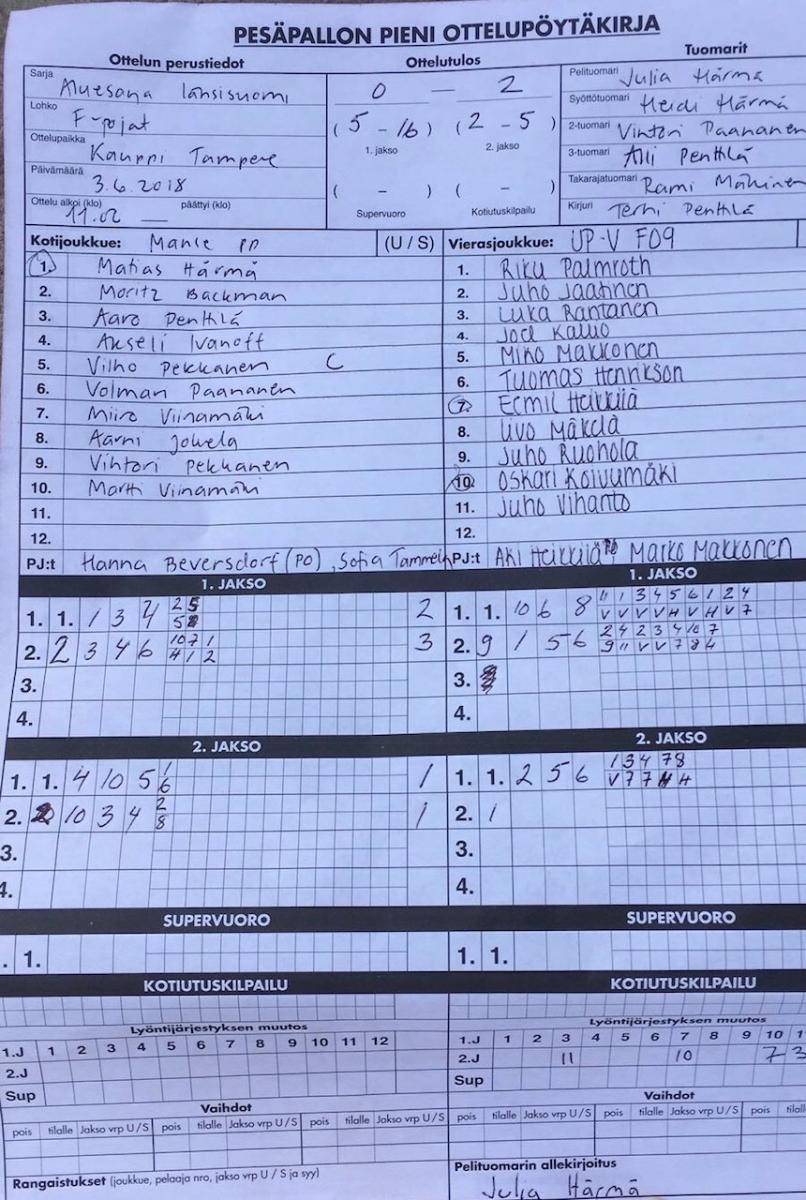 PESÄPALLON PIENI OTTELUPÖYTÄKIRJA
Ottelun perustiedot
Ottelutulos
Tuomarit
Sarja Aluesarja länsisuomi
Lohko F-pojat
Ottelupaikka Kauppi Tampere
Päivämäärä 3.6.2018
Ottelu alkoi (klo) 11.02 — päättyi (klo)
0 — 2
(5 - 16) (2 - 5)
1. jakso 2. jakso
( - ) ( - )
Supervuoro Kotiutuskilpailu
Pelituomari Julia Härmä
Syöttötuomari Heidi Härmä
2-tuomari Vihtori Paananen
3-tuomari Alli Penttilä
Takarajatuomari Rami Mäkinen
Kirjuri Terhi Penttilä
Kotijoukkue: Manse PP (U / S)
1. Matias Härmä
2. Moritz Backman
3. Aaro Penttilä
4. Akseli Ivanoff
5. Vilho Pekkanen C
6. Volman Paananen
7. Miiro Viinamäki
8. Aarni Jokela
9. Vihtori Pekkanen
10. Martti Viinamäki
11.
12.
PJ:t Hanna Beversdorf (PO), Sofia Tammein
Vierasjoukkue: UP-V F09
1. Riku Palmroth
2. Juho Jaatinen
3. Luka Rantanen
4. Joel Kallio
5. Miko Makkonen
6. Tuomas Henrikson
7. Eemil Heikkilä
8. Eevo Mäkelä
9. Juho Ruohola
10. Oskari Koivumäki
11. Juho Vihanto
12.
PJ:t Aki Heikkilä PO, Marko Makkonen
1. JAKSO
1. 1. 1 3 4 2 5 2
5 8
2. 2 3 4 6 10 7 1 3
4 1 2
3.
4.
1. JAKSO
1. 1. 10 6 8 11 1 3 4 5 6 1 2 4
V V V V H V H V 7
2. 9 1 5 6 2 4 2 3 4 10 7
9 11 V V 7 8 4
3.
4.
2. JAKSO
1. 1. 4 10 5 1 1
6
2. 10 3 4 2 1
8
3.
4.
2. JAKSO
1. 1. 2 5 6 1 3 4 7 8
V 7 7 H H
2. 1
3.
4.
SUPERVUORO
. 1.
SUPERVUORO
1. 1.
KOTIUTUSKILPAILU
KOTIUTUSKILPAILU
Lyöntijärjestyksen muutos
1.J 1 2 3 4 5 6 7 8 9 10 11 12
2.J
Sup
Lyöntijärjestyksen muutos
1.J 1 2 3 4 5 6 7 8 9 10 1
2.J 11 10 7 3
Sup
Vaihdot
pois tilalle Jakso vrp U / S pois tilalle Jakso vrp U / S pois tilalle Jakso vrp U / S
Vaihdot
pois tilalle Jakso vrp U / S pois tilalle Jakso vrp U / S pois tilalle
Rangaistukset (joukkue, pelaaja nro, jakso vrp U / S ja syy)
Pelituomarin allekirjoitus
Julia Härmä